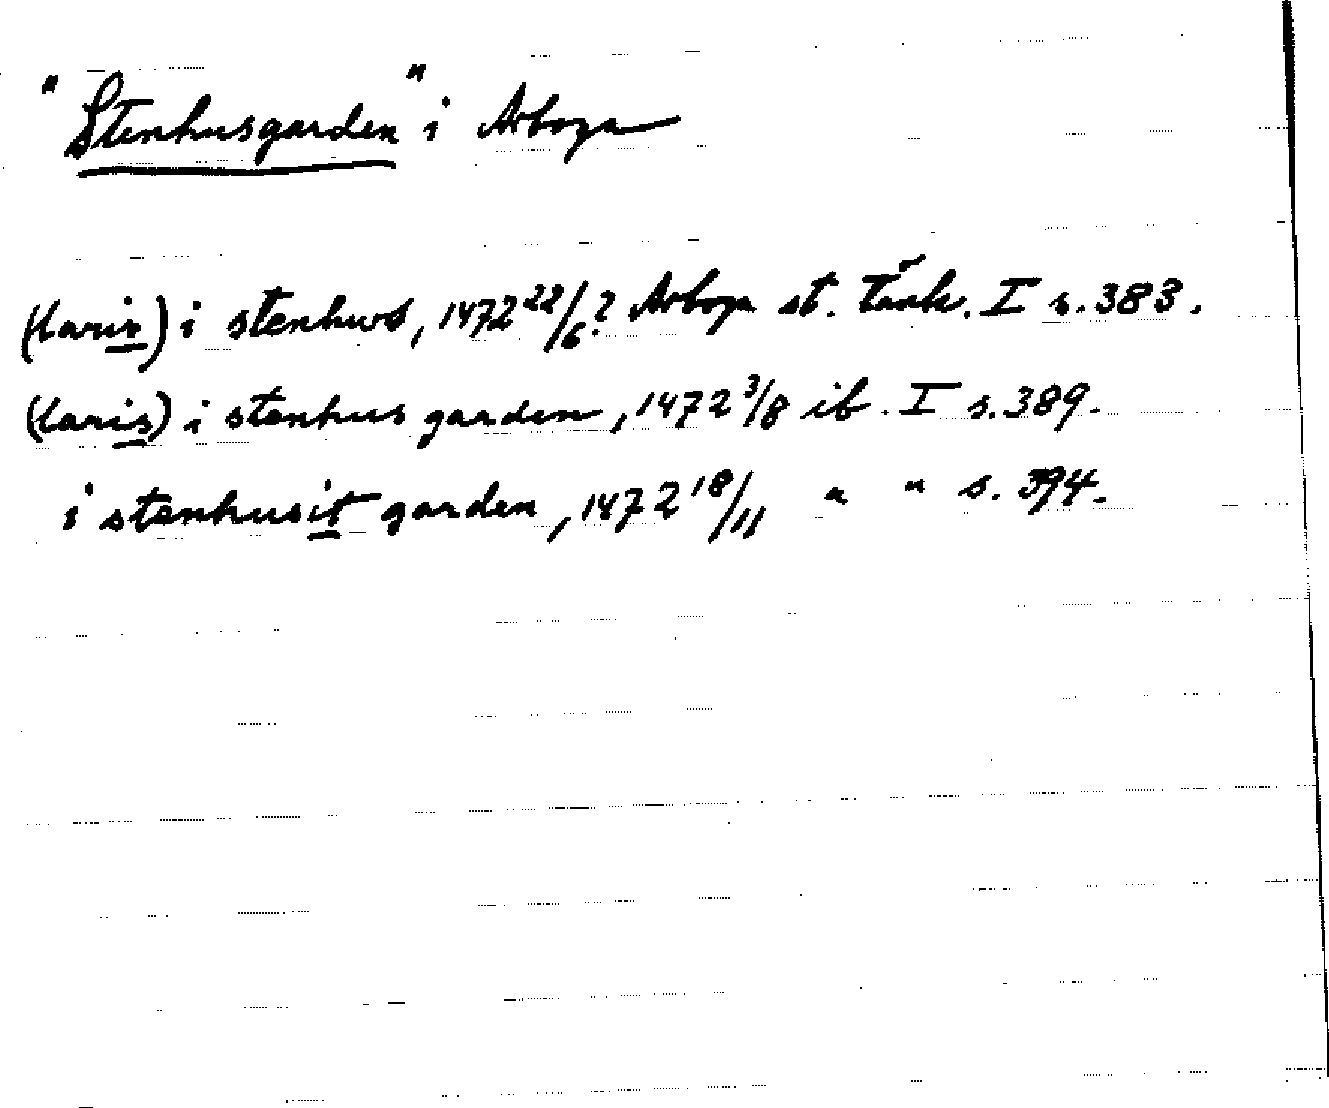 "Stenhusgarden" i Arboga
(Laris) i stenhws, 1472 22/6? Arboga st. tänk. I s. 383.
(Laris) i stenhus garden, 1472 3/8 ib. I s. 389.
i stenhusit garden, 1472 18/11 " " s. 394.